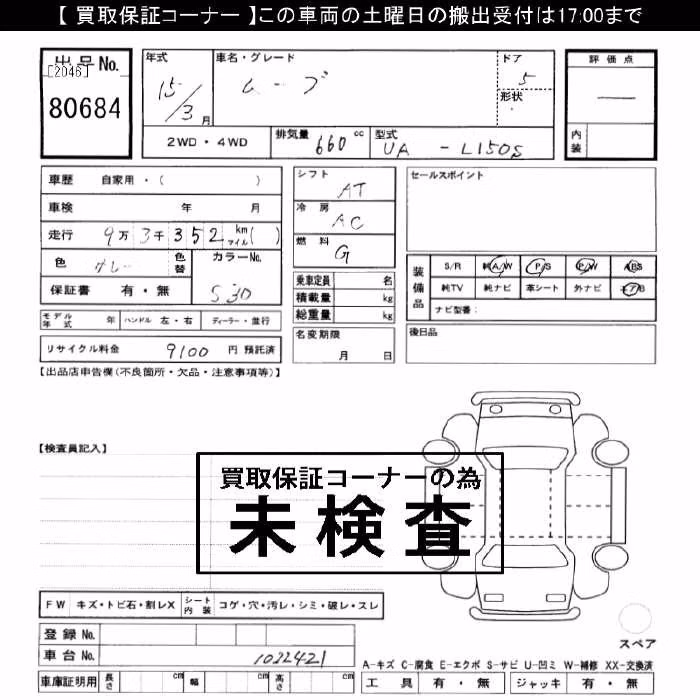 【 買取保証コーナー 】この車両の土曜日の搬出受付は17:00まで
出品No.
[2046]
80684
年式 15/3 月
車名・グレード ムーブ
ドア 5
形状
評価点
―
内装
2WD・4WD
排気量 660 cc
型式 UA - L150S
車歴 自家用・( )
車検 年 月
走行 9万 3千 352 km マイル( )
色 グレー
色替
カラーNo. S30
保証書 有・無
シフト AT
冷房 AC
燃料 G
乗車定員 名
積載量 kg
総重量 kg
名変期限 月 日
セールスポイント
装備品
S/R 純A/W P/S P/W ABS
純TV 純ナビ 革シート 外ナビ エアB
ナビ型番:
後日品
モデル年式 年 ハンドル 左・右 ディーラー・並行
リサイクル料金 9100 円 預託済
【出品店申告欄(不良箇所・欠品・注意事項等)】
【検査員記入】
買取保証コーナーの為
未検査
FW キズ・トビ石・割レX シート内装 コゲ・穴・汚レ・シミ・破レ・スレ
スペア
登録 No.
車台 No. 1022421
A-キズ C-腐食 E-エクボ S-サビ U-凹ミ W-補修 XX-交換済
車庫証明用 長さ cm 幅 cm 高さ cm
工具 有・無 ジャッキ 有・無